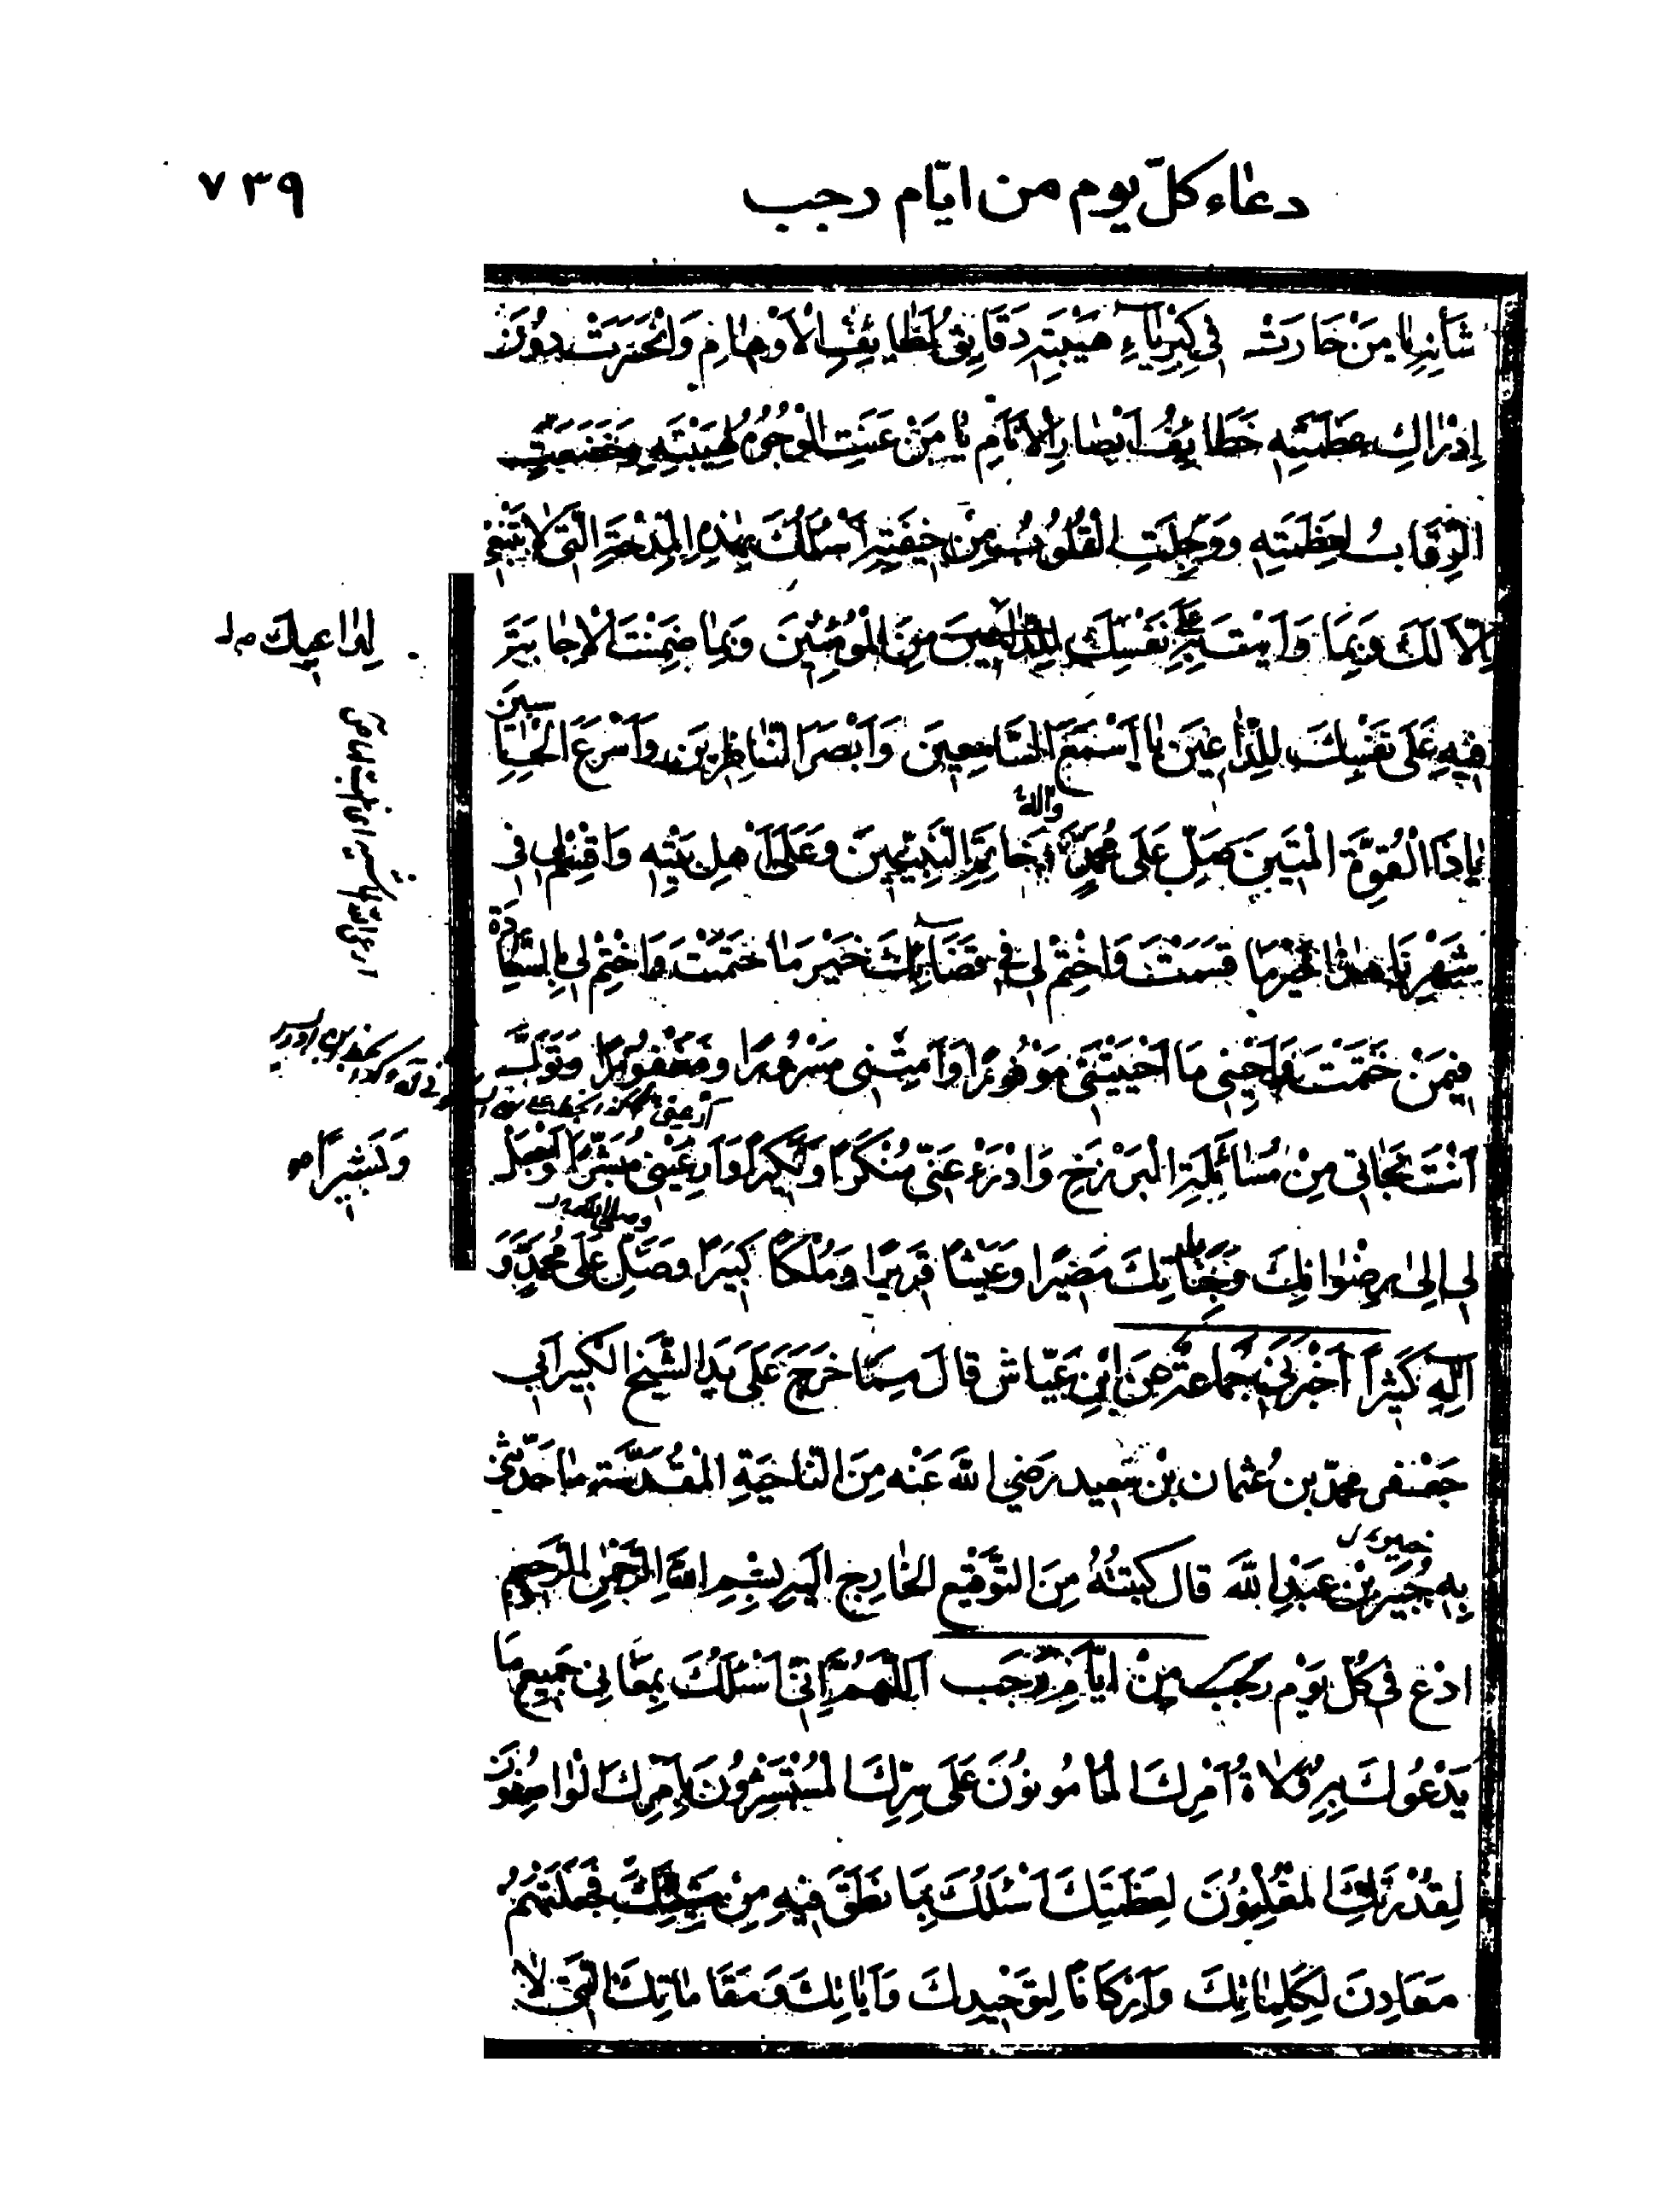 دعاء كلّ يوم من ايّام رجب
٧٣٩
شَأنِهِ يا مَنْ حارَتْ في كِبْرِياءِ هَيْبَتِهِ دَقايِقُ لَطايِفِ الْاَوْهامِ وَانْحَسَرَتْ دُونَ
اِدْراكِ عَظَمَتِهِ خَطايِفُ اَبْصارِ الْاَنامِ يا مَنْ عَنَتِ الْوُجُوهُ لِهَيْبَتِهِ وَخَضَعَتِ
الرِّقابُ لِعَظَمَتِهِ وَوَجِلَتِ الْقُلُوبُ مِنْ خيفَتِهِ اَسْئَلُكَ بِهٰذِهِ الْمِدْحَةِ الَّتي لا تَنْبَغي
اِلّا لَكَ وَبِما وَاَيْتَ بِهِ عَلى نَفْسِكَ لِلدّاعينَ مِنَ الْمُؤْمِنينَ وَبِما ضَمِنْتَ الْاِجابَةَ
لِداعيكَ
فيهِ عَلى نَفْسِكَ لِلدّاعينَ يا اَسْمَعَ السّامِعينَ وَاَبْصَرَ النّاظِرينَ وَاَسْرَعَ الْحاسِبينَ
يا ذَا الْقُوَّةِ الْمَتينَ صَلِّ عَلى مُحَمَّدٍ وآله خاتَمِ النَّبِيّينَ وَعَلى اَهْلِ بَيْتِهِ وَاقْسِمْ لي في
شَهْرِنا هٰذا خَيْرَ ما قَسَمْتَ وَاخْتِمْ لي في قَضائِكَ خَيْرَ ما حَتَمْتَ وَاخْتِمْ لي بِالسَّعادَةِ
فيمَنْ خَتَمْتَ وَاَحْيِني ما اَحْيَيْتَني مَوْفُورًا وَاَمِتْني مَسْرُورًا وَمَغْفُورًا وَتَوَلَّ
اَنْتَ نَجاتي مِنْ مُسائَلَةِ الْبَرْزَخِ وَادْرَءْ عَنّي مُنْكَرًا وَنَكيرًا وَاَرِ عَيْني مُبَشِّرًا وَاجْعَلْ
وَبَشيرًا
لي اِلى رِضْوانِكَ وَجِنانِكَ مَصيرًا وَعَيْشًا قَريرًا وَمُلْكًا كَبيرًا وَصَلِّ عَلى مُحَمَّدٍ وَ
آلِهِ كَثيرًا اَخْبَرَني جَماعَةٌ عَنِ ابْنِ عَيّاش قالَ مِمّا خَرَجَ عَلى يَدِ الشَّيْخِ الْكَبيرِ اَبي
جَعْفَر محمّد بن عُثمان بْن سَعيد رَضيَ اللهُ عَنْه مِنَ النّاحِيَةِ الْمُقَدَّسَةِ ما حَدَّثَني
بِهِ جُبَيْرُ بْن عَبْدِ اللهِ قال كَتَبْتُهُ مِنَ التَّوْقيعِ الْخارِجِ اِلَيْهِ بِسْمِ اللهِ الرَّحْمٰنِ الرَّحيمِ
ادْعُ في كُلِّ يَوْم رجب مِنْ ايّامِ رَجَب اَللّهُمَّ اِنّي اَسْئَلُكَ بِمَعاني جَميعِ ما
يَدْعُوكَ بِهِ وُلاةُ اَمْرِكَ الْمَاْمُونُونَ عَلى سِرِّكَ الْمُسْتَسِرُّونَ بِاَمْرِكَ الْواصِفُونَ
لِقُدْرَتِكَ الْمُعْلِنُونَ لِعَظَمَتِكَ اَسْئَلُكَ بِما نَطَقَ فيهِ مِنْ مَشِيَّتِكَ فَجَعَلْتَهُمْ
مَعادِنَ لِكَلِماتِكَ وَاَرْكانًا لِتَوْحيدِكَ وَآياتِكَ وَمَقاماتِكَ الَّتي لا